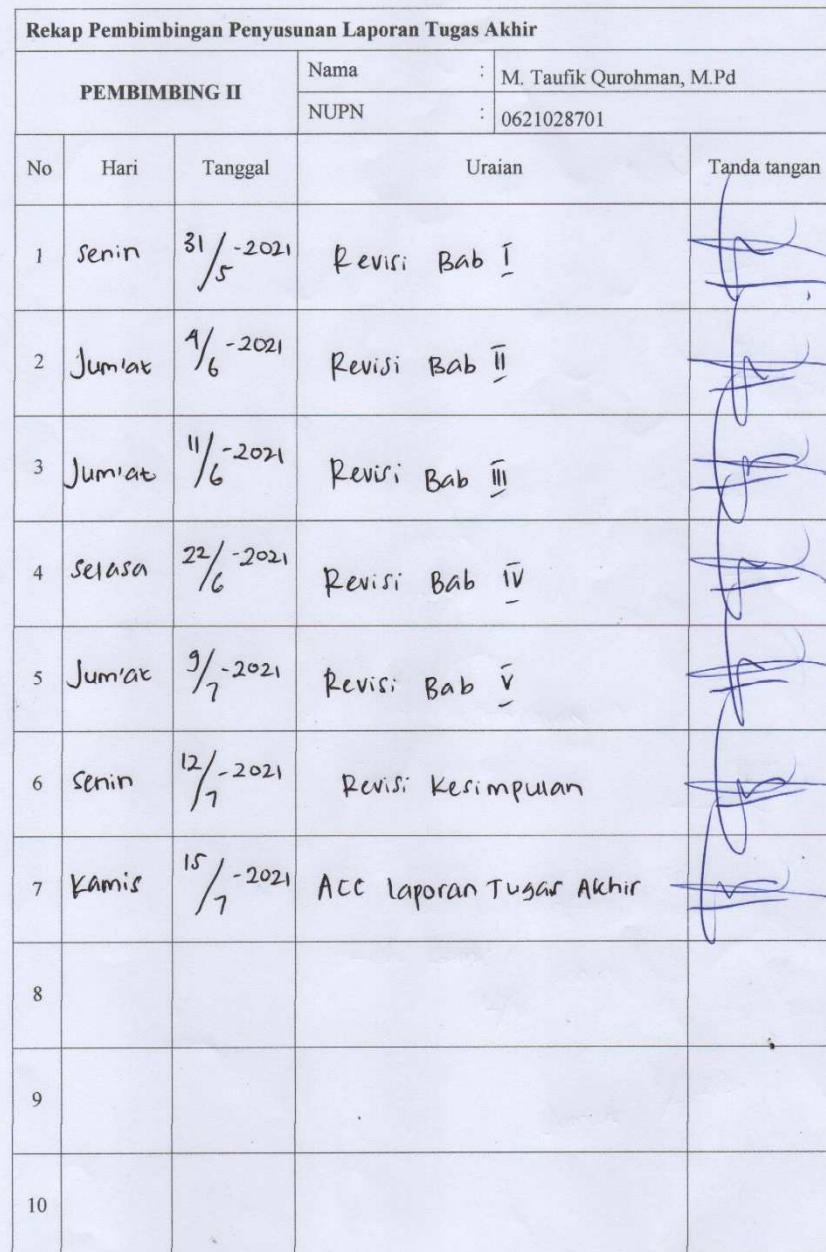 Rekap Pembimbingan Penyusunan Laporan Tugas Akhir
PEMBIMBING II
Nama : M. Taufik Qurohman, M.Pd
NUPN : 0621028701
No Hari Tanggal Uraian Tanda tangan
1 Senin 31/5-2021 Revisi Bab I
2 Jum'at 4/6-2021 Revisi Bab II
3 Jum'at 11/6-2021 Revisi Bab III
4 Selasa 22/6-2021 Revisi Bab IV
5 Jum'at 9/7-2021 Revisi Bab V
6 Senin 12/7-2021 Revisi Kesimpulan
7 Kamis 15/7-2021 ACC laporan Tugas Akhir
8
9
10